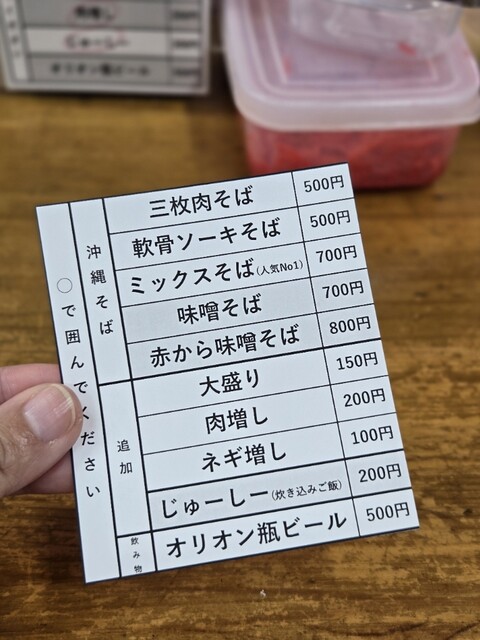 じゅーしー
オリオン瓶ビール
〇で囲んでください
沖縄そば
三枚肉そば 500円
軟骨ソーキそば 500円
ミックスそば(人気No1) 700円
味噌そば 700円
赤から味噌そば 800円
追加
大盛り 150円
肉増し 200円
ネギ増し 100円
じゅーしー(炊き込みご飯) 200円
飲み物
オリオン瓶ビール 500円